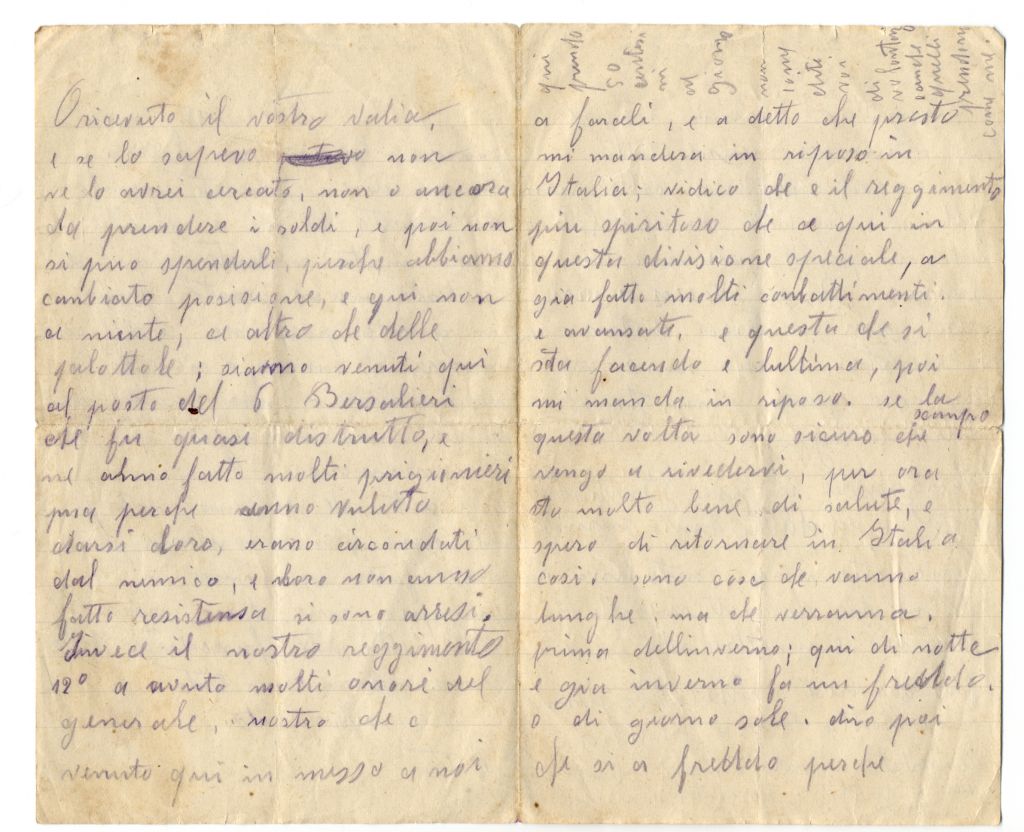 O ricevuto il vostro valia,
e se lo sapevo non
ve lo avrei cercato, non o ancora
da prendere i soldi, e poi non
si puo spenderli, perche abbiamo
cambiato posisione, e qui non
a niente, ce altro che delle
palottole; siamo venuti qui
al posto del 6 Bersalieri
che fu quasi distrutto, e
ne anno fatto molti prigionieri
ma perche anno voluto
darsi loro, erano circondati
dal nemico, e loro non anno
fatto resistensa si sono arresi.
Invece il nostro reggimento
12º a avuto molti onore del
generale, nostro che e
venuto qui in messo a noi
a farceli, e a detto che presto
mi mandera in riposo in
Italia; vidico che e il reggimento
piu spiritoso che ce qui in
questa divisione speciale, a
gia fatto molti conbattimenti.
e avansate, e questa che si
sta facendo e lultima, poi
mi manda in riposo. se la
scanpo
questa volta sono sicuro che
vengo a rivedervi, per ora
sto molto bene di salute, e
spero di ritornare in Italia
cosi. sono cose che vanno
lunghe. ma che verranna.
prima dellinverno; qui di notte
e gia inverno fa un freddo.
o di giorno sole. diro poi
che si a freddo perche
qui
prendo
50
centesi
mi
al
giorno
non
di
volontar
quelli
prendon
come me.